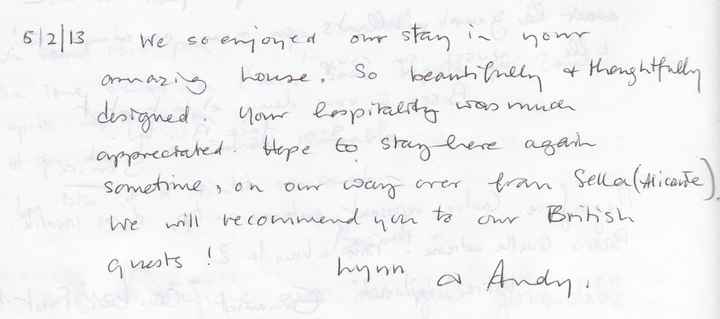 5/2/13 We so enjoyed our stay in your
amazing house. So beautifully & thoughtfully
designed. Your hospitality was much
appreciated. Hope to stay here again
sometime, on our way over from Sella (Alicante).
We will recommend you to our British
guests! Lynn & Andy.